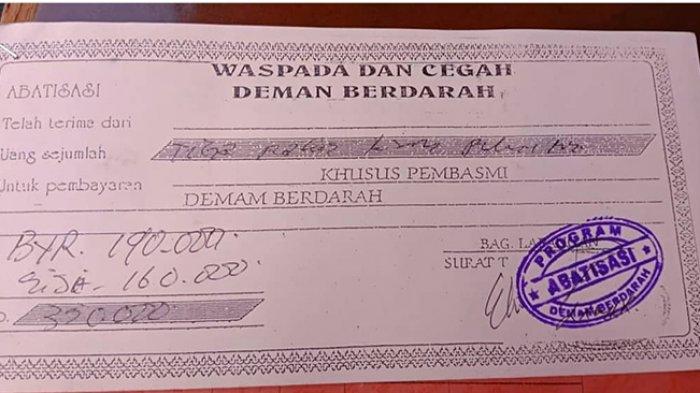 WASPADA DAN CEGAH
DEMAN BERDARAH
ABATISASI
Telah terima dari
Uang sejumlah Tiga Ratus Lima Puluh
Untuk pembayaran KHUSUS PEMBASMI
DEMAM BERDARAH
BYR. 190.000.
SISA - 160.000.
350.000
BAG.
SURAT T
PROGRAM
ABATISASI
DEMAM BERDARAH